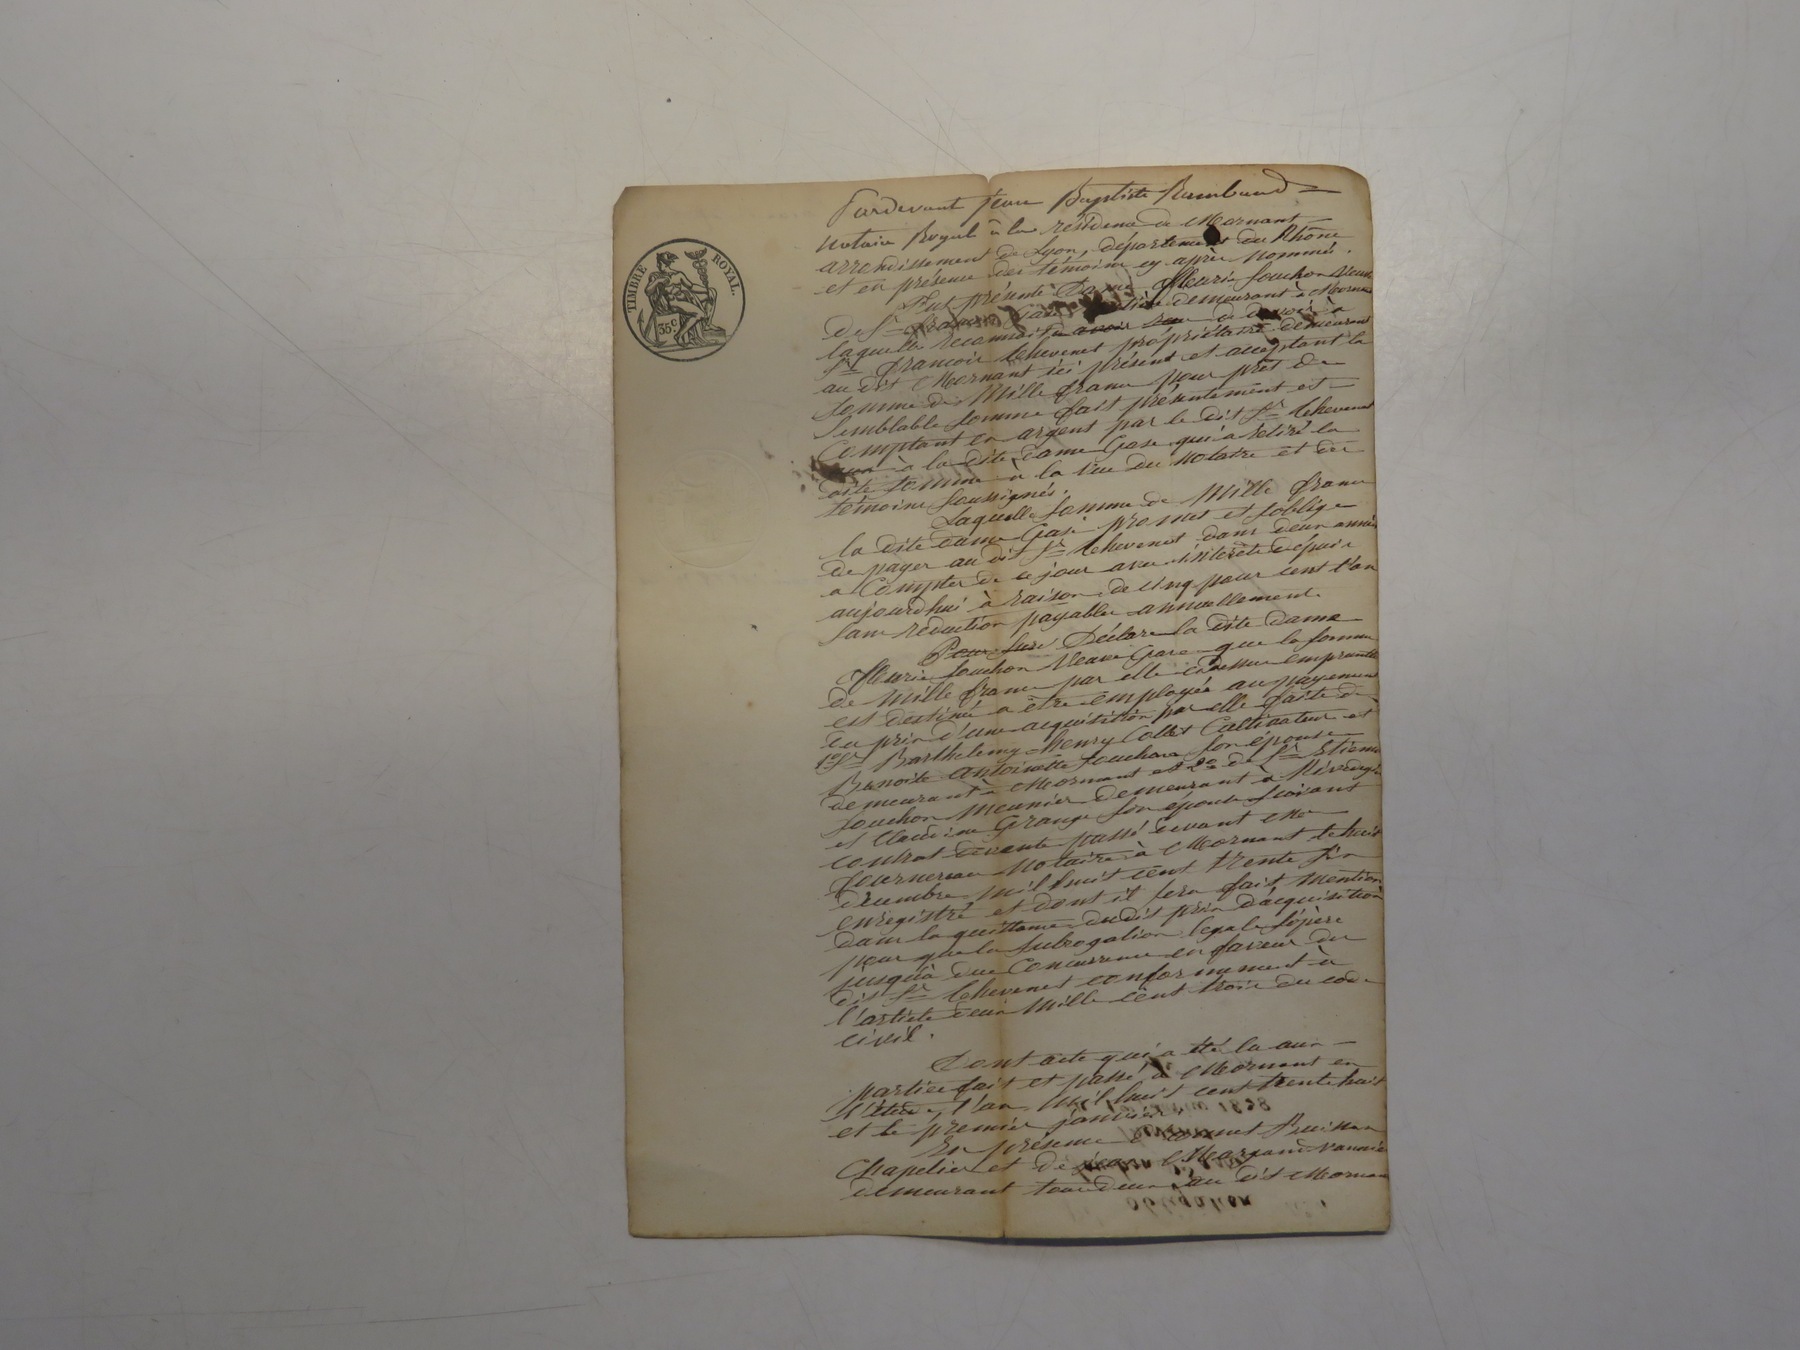 TIMBRE ROYAL.
35c
Pardevant Jean Baptiste Rambaud
Notaire Royal à la résidence de Mornant
arrondissement de Lyon, département du Rhône
et en présence des témoins cy après nommés.
Fut présente Dame Fleurie Souchon Veuve
de Sr demeurant à Mornant
laquelle reconnait devoir à
Sr François Chevenet propriétaire demeurant
au dit Mornant ici présent et acceptant la
Somme de Mille francs pour prêt de
Semblable Somme fait présentement et
Comptant en argent par le dit Sr Chevenet
à la dite dame Gase qui a retiré la
dite Somme à la vue du Notaire et des
témoins Soussignés.
Laquelle Somme de Mille francs
la dite dame Gase promet et s'oblige
de payer au dit Sr Chevenet dans deux années
a Compter de ce jour avec intérêts depuis
aujourdhui à raison de cinq pour cent l'an
Sans réduction payables annuellement.
Déclare la dite dame
Fleurie Souchon Veuve Gase que la Somme
de Mille francs par elle cy dessus empruntée
est destinée a être employée au payement
du prix d'une acquisition par elle faite de
1o Sr Barthelemy Henry Collet Cultivateur et
Benoite Antoinette Souchon Son épouse
demeurant à Mornant et 2o de Sr Etienne
Souchon Meunier demeurant à
et Claudine Grange Son épouse Suivant
contrat de vente passé devant Me
Fournereau Notaire à Mornant le huit
décembre mil huit cent trente Six
enregistré et dont il Sera fait Mention
dans la quittance du dit prix d'acquisition
pour que la Subrogation légale S'opère
jusqu'à due Concurrence en faveur du
dit Sr Chevenet conformément à
l'article deux Mille cent trois du code
civil.
Dont acte qui a été lu aux
parties fait et passé à Mornant en
l'étude, l'an Mil huit cent trente huit
et le premier janvier
En présence de
Chapelier et de
demeurant tous deux au dit Mornant
1838
obligation